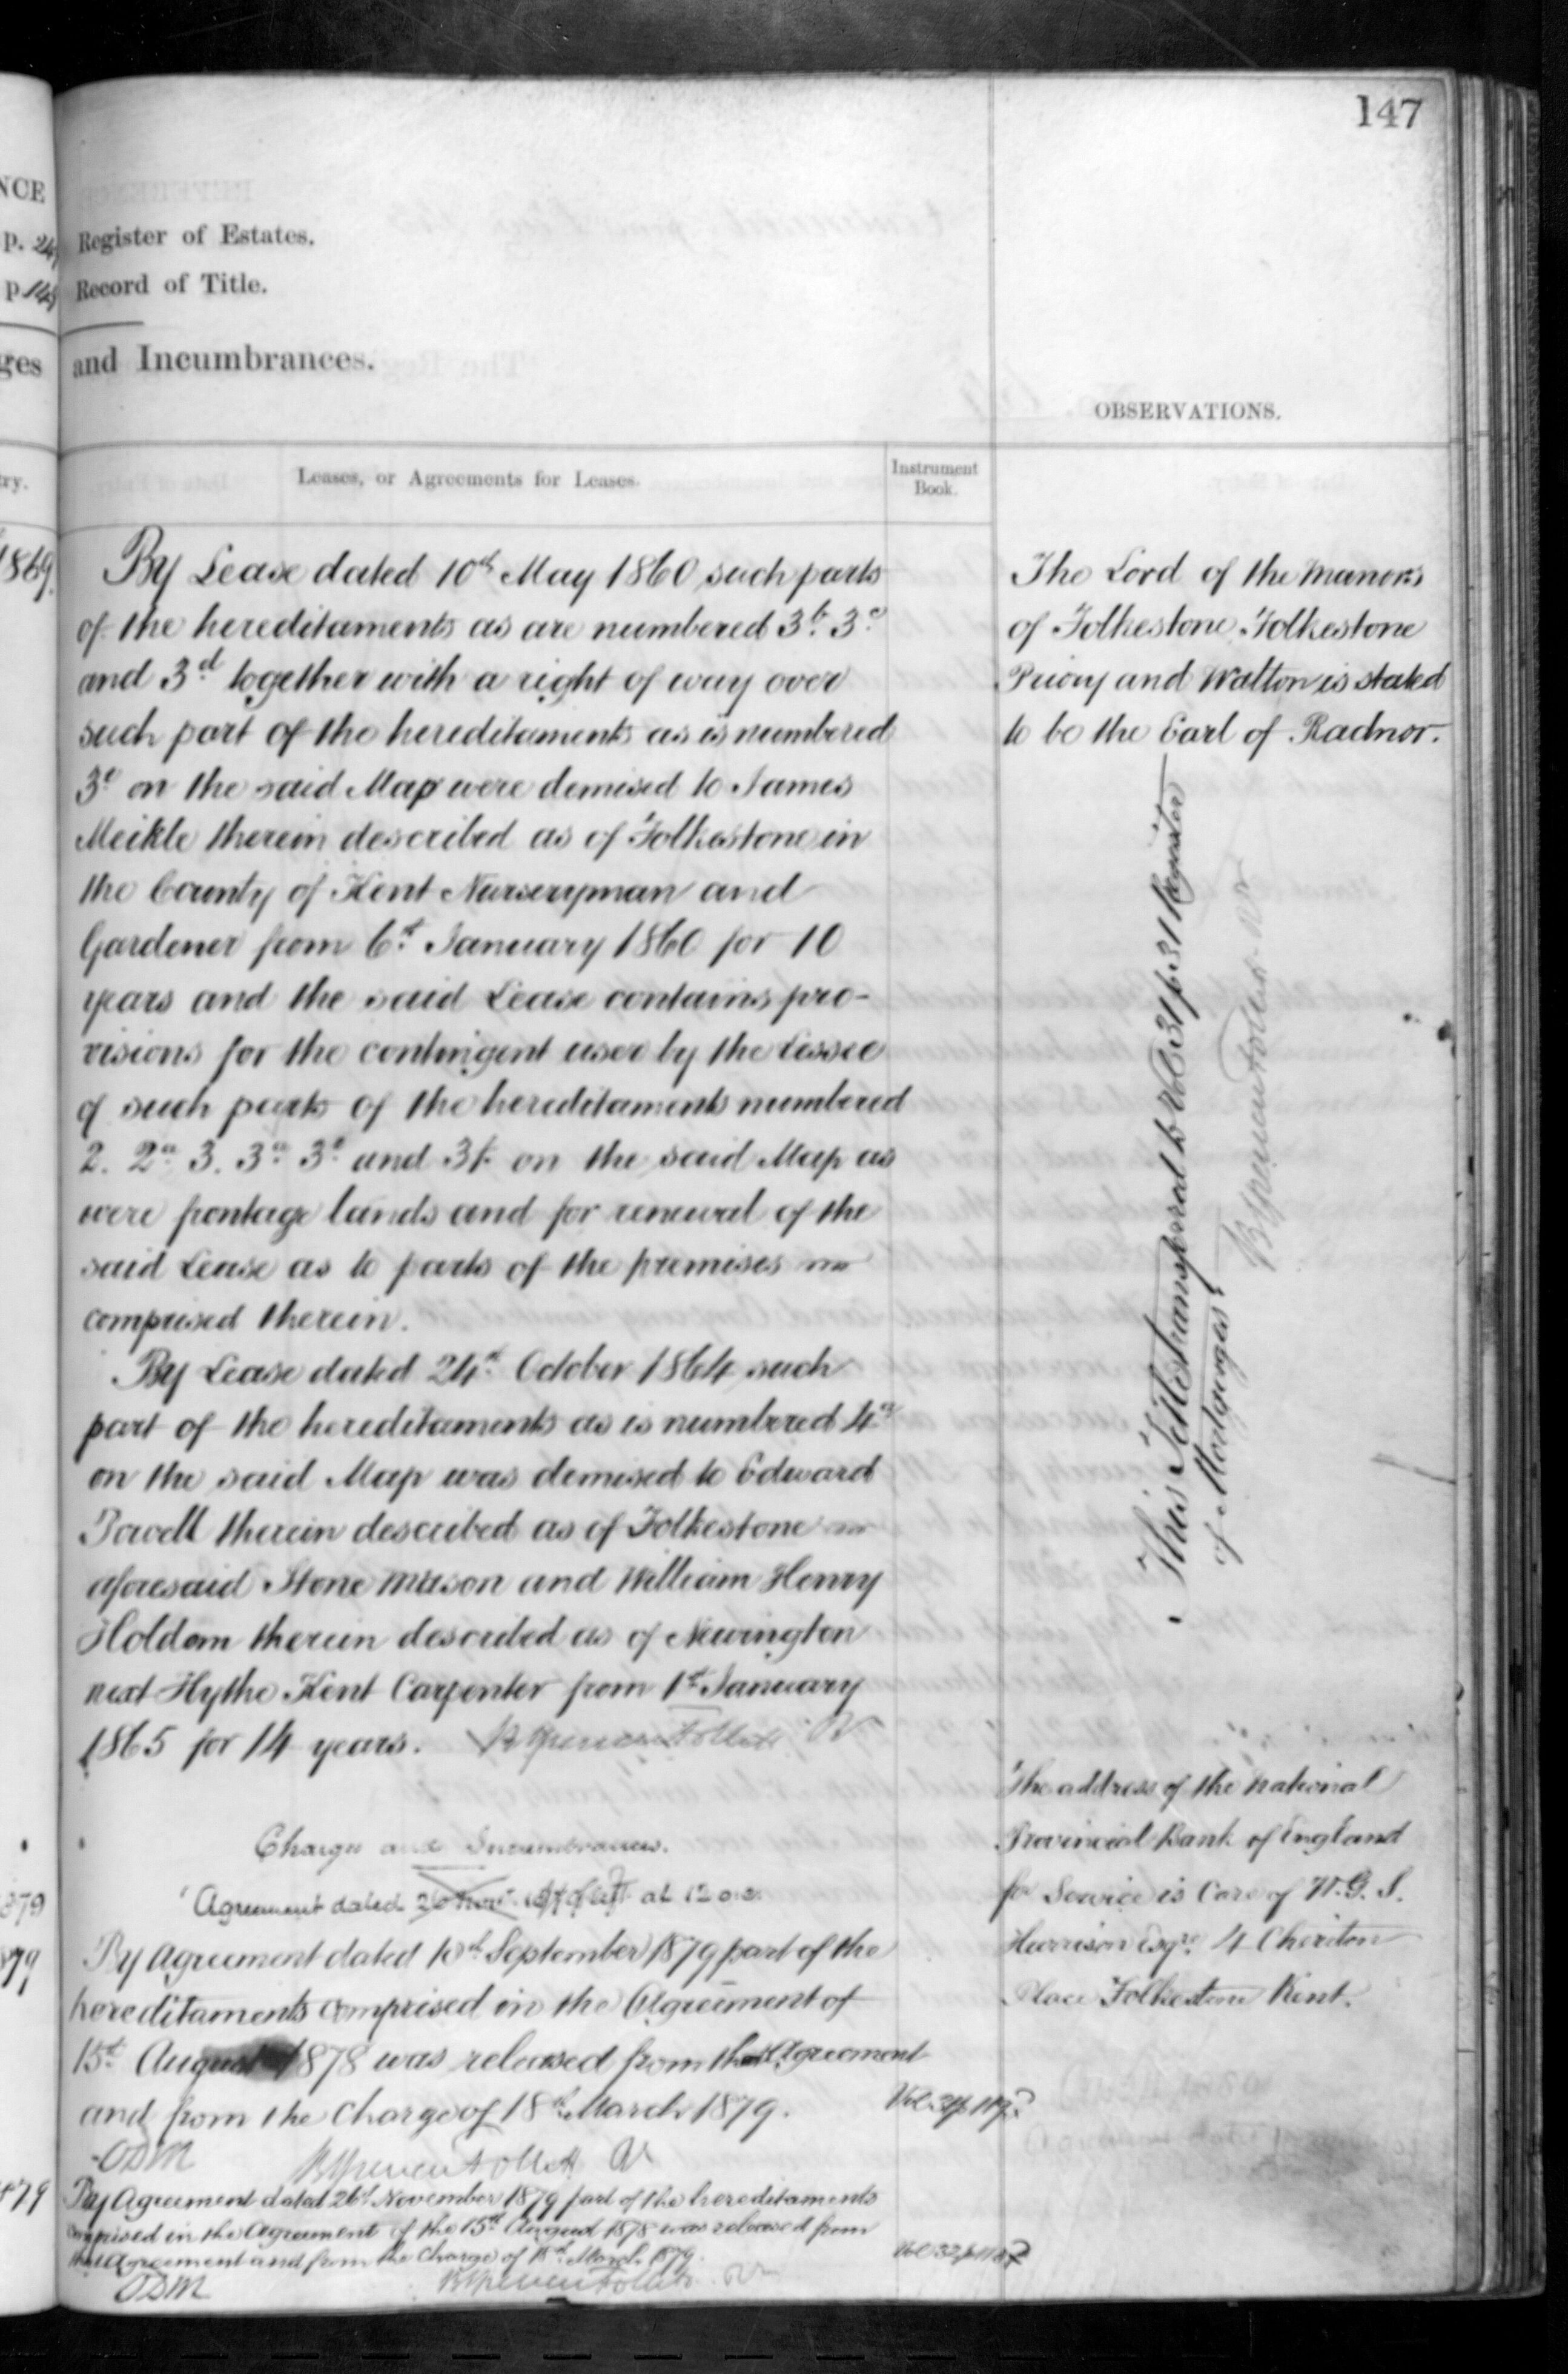 147
NCE
p. 24
p. 148
ges
Register of Estates.
Record of Title.
and Incumbrances.
OBSERVATIONS.
try.
Leases, or Agreements for Leases.
Instrument
Book.
1869.
By Lease dated 10th May 1860 such parts
of the hereditaments as are numbered 3b. 3c.
and 3d. together with a right of way over
such part of the hereditaments as is numbered
3e on the said Map were demised to James
Meikle therein described as of Folkestone in
the County of Kent Nurseryman and
Gardener from 6th January 1860 for 10
years and the said Lease contains pro-
visions for the contingent user by the Lessee
of such parts of the hereditaments numbered
2. 2a. 3. 3a. 3e. and 3f. on the said Map as
were frontage lands and for renewal of the
said Lease as to parts of the premises
comprised therein.
By Lease dated 24th October 1864 such
part of the hereditaments as is numbered 4a
on the said Map was demised to Edward
Powell therein described as of Folkestone
aforesaid Stone Mason and William Henry
Holdom therein described as of Newington
next Hythe Kent Carpenter from 1st January
1865 for 14 years. B Spencer Follett
Charges and Incumbrances.
Agreement dated at 12 o.c.
879
By Agreement dated 10th September 1879 part of the
hereditaments comprised in the Agreement of
15th August 1878 was released from that Agreement
and from the Charge of 18th March 1879.
ODM B Spencer Follett
879
By Agreement dated 26th November 1879 part of the hereditaments
comprised in the Agreement of the 15th August 1878 was released from
that Agreement and from the Charge of 18th March 1879.
ODM B Spencer Follett
The Lord of the Manors
of Folkestone, Folkestone
Priory and Walton is stated
to be the Earl of Radnor.
This Title transferred to Vol: 31 p. 31 Register
of Mortgages
B Spencer Follett
The address of the National
Provincial Bank of England
for Service is Care of W. G. S.
Harrison Esqre. 4 Cheriton
Place Folkestone Kent.